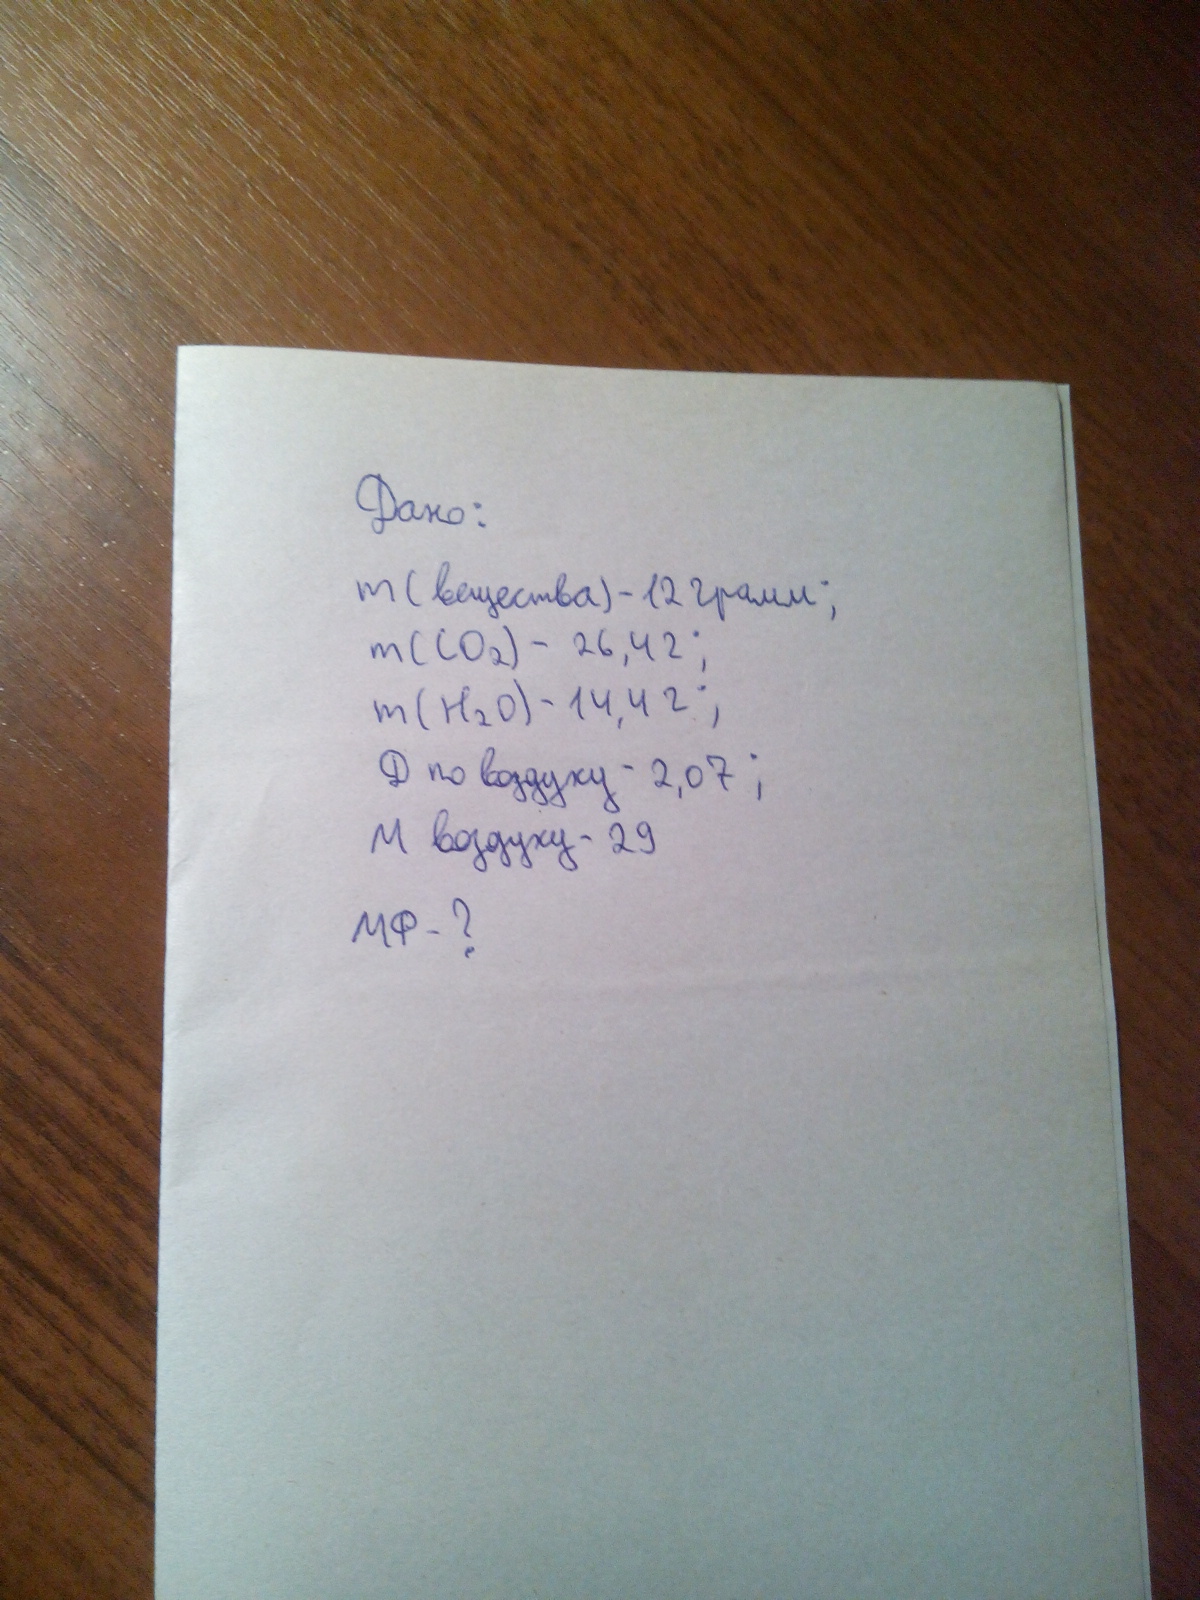 Дано:
m(вещества)-12 грамм;
m(CO₂)- 26,4 г;
m(H₂O)-14,4 г;
D по воздуху-2,07;
M воздуху-29
МФ-?